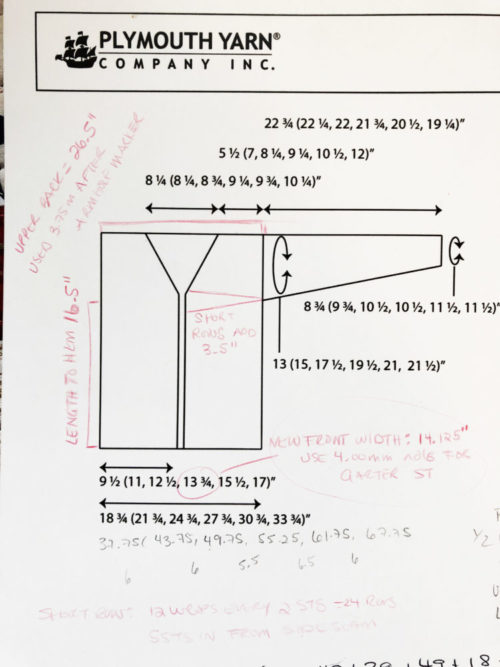 PLYMOUTH YARN®
COMPANY INC.
22 ¾ (22 ¼, 22, 21 ¾, 20 ½, 19 ¼)”
5 ½ (7, 8 ¼, 9 ¼, 10 ½, 12)”
8 ¼ (8 ¼, 8 ¾, 9 ¼, 9 ¾, 10 ¼)”
UPPER BACK = 26.5"
USED 3.75m AFTER
ARMHOLE MARKER
8 ¾ (9 ¾, 10 ½, 10 ½, 11 ½, 11 ½)”
SHORT
ROWS ADD
3.5"
LENGTH TO HEM 16.5"
13 (15, 17 ½, 19 ½, 21, 21 ½)”
NEW FRONT WIDTH: 14.125"
USE 4.00mm FOR
GARTER ST
9 ½ (11, 12 ½, 13 ¾, 15 ½, 17)”
18 ¾ (21 ¾, 24 ¾, 27 ¾, 30 ¾, 33 ¾)”
37.75( 43.75, 49.75, 55.25, 61.75, 67.75
Y2
6 6 5.5 6.5 6
SHORT ROWS: 12 WRAPS EVERY 2 STS = 24 ROWS
5 STS IN FROM SIDESEAM